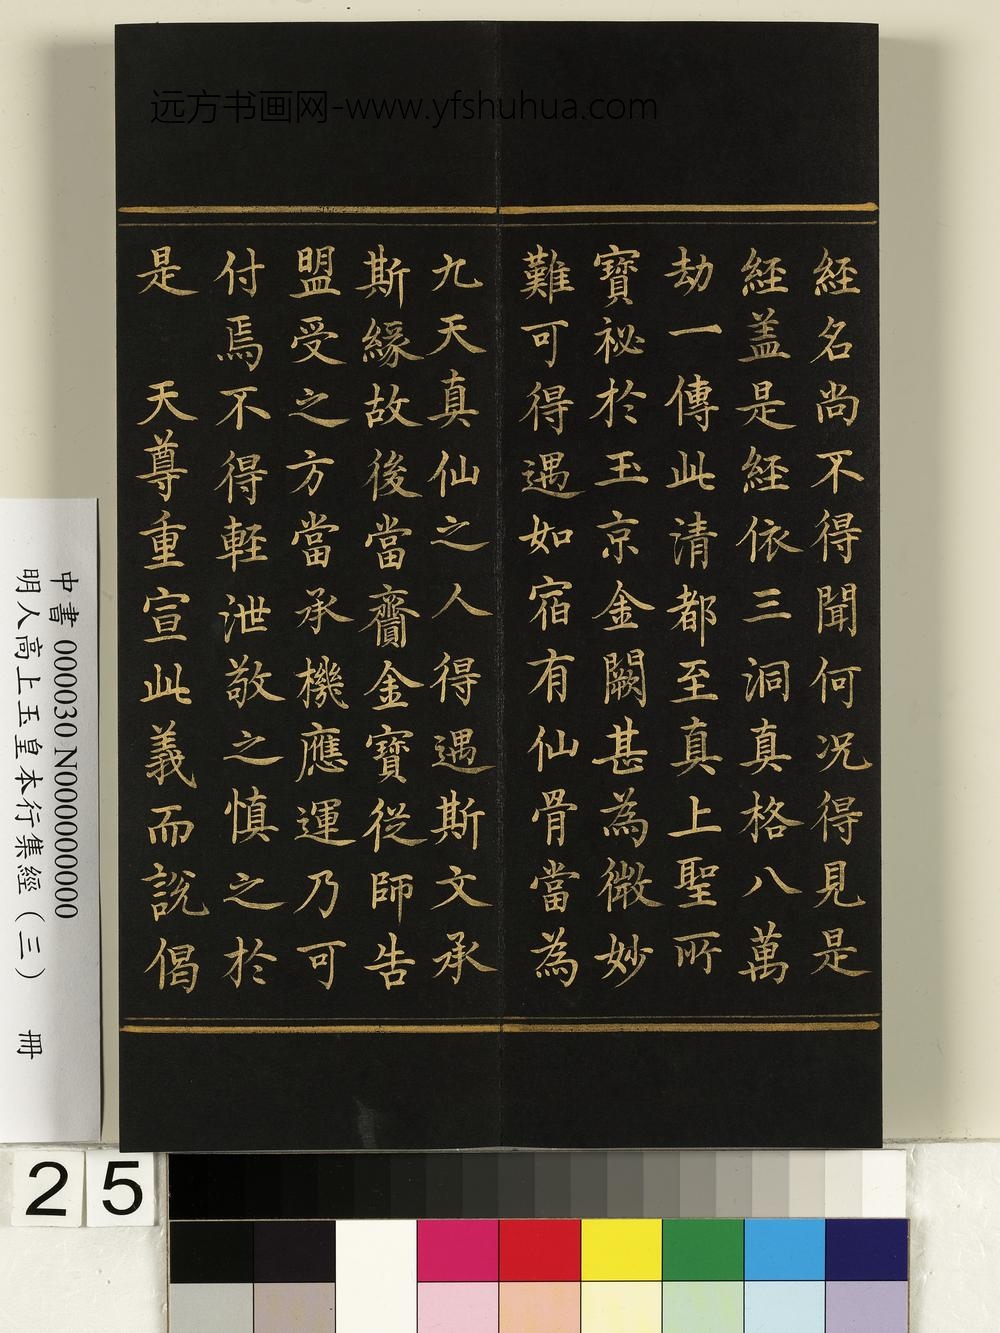 远方书画网-www.yfshuhua.com
經名尚不得聞何況得見是
經盖是經依三洞真格八萬
劫一傳此清都至真上聖所
寶祕於玉京金闕甚為微妙
難可得遇如宿有仙骨當為
九天真仙之人得遇斯文承
斯緣故後當齎金寶從師告
盟受之方當承機應運乃可
付焉不得輕泄敬之慎之於
是 天尊重宣此義而說偈
中書 000030 N000000000
明人高上玉皇本行集經（三） 冊
25